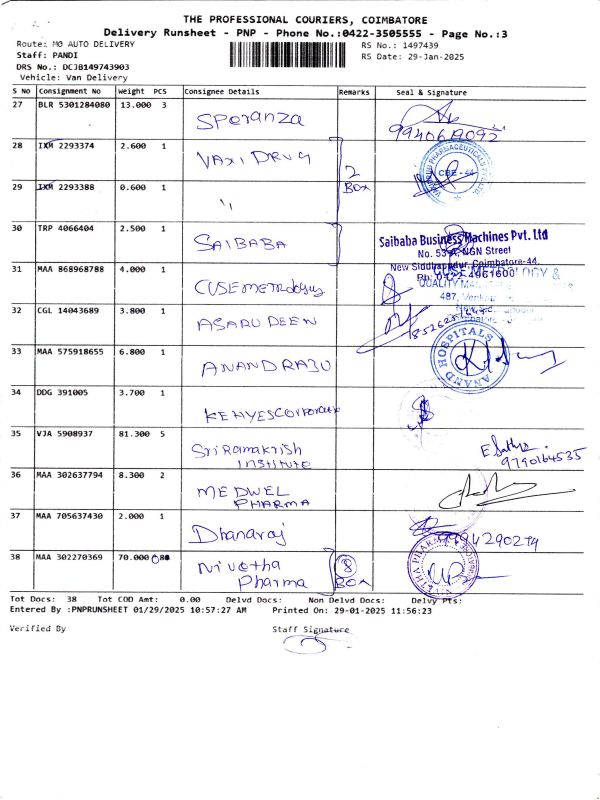 THE PROFESSIONAL COURIERS, COIMBATORE
Delivery Runsheet - PNP - Phone No.:0422-3505555 - Page No.:3
Route: M0 AUTO DELIVERY
RS No.: 1497439
Staff: PANDI
RS Date: 29-Jan-2025
DRS No.: DCJB149743903
Vehicle: Van Delivery
S No Consignment No Weight PCS Consignee Details Remarks Seal & Signature
27 BLR 5301284080 13.000 3 Speranza 9940619092
28 IXM 2293374 2.600 1 VAXI DRUG 2 BOX
CBE - 44
29 IXM 2293388 0.600 1 "
30 TRP 4066404 2.500 1 SAIBABA
Saibaba Business Machines Pvt. Ltd
NGN Street
New Siddhapudur, Coimbatore-44.
Ph: 0422-4961600
31 MAA 868968788 4.000 1
487,
32 CGL 14043689 3.800 1 ASARUDEEN
33 MAA 575918655 6.800 1 ANANDRAJU
ANAND HOSPITALS
34 DDG 391005 3.700 1 KENYESCorporate
35 VJA 5908937 81.300 5 Sri Ramakrish
institute
9790164535
36 MAA 302637794 8.300 2 MEDWEL
PHARMA
37 MAA 705637430 2.000 1 Dhanaraj
38 MAA 302270369 70.000 8 Nivetha
Pharma 8 BOX
Tot Docs: 38 Tot COD Amt: 0.00 Delvd Docs: Non Delvd Docs: Delvy Pts:
Entered By :PNPRUNSHEET 01/29/2025 10:57:27 AM Printed On: 29-01-2025 11:56:23
Verified By Staff Signature